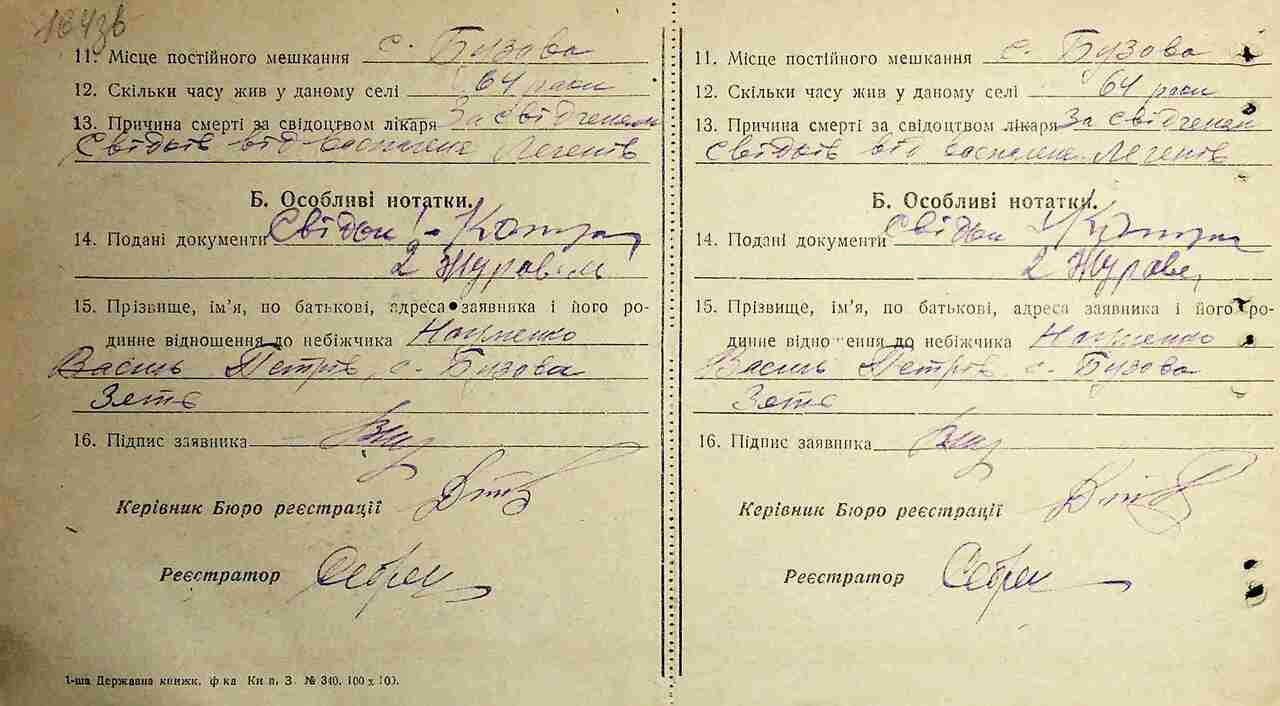 184зв
11. Місце постійного мешкання с. Бузова
12. Скільки часу жив у даному селі 64 роки
13. Причина смерті за свідоцтвом лікаря За свідченєм
Свідків від воспалене Легенів
Б. Особливі нотатки.
14. Подані документи Свідки 1-
2 Журавель
15. Прізвище, ім'я, по батькові, адреса заявника і його ро-
динне відношення до небіжчика Науменко
Василь Петрів, с. Бузова
Зять
16. Підпис заявника
Керівник Бюро реєстрації
Реєстратор
1-ша Державна книжк. ф-ка Київ, З. № 340. 100 х 100.
11. Місце постійного мешкання с. Бузова
12. Скільки часу жив у даному селі 64 роки
13. Причина смерті за свідоцтвом лікаря За свідченєм
Свідків від воспалене Легенів
Б. Особливі нотатки.
14. Подані документи Свідки
2 Журавел
15. Прізвище, ім'я, по батькові, адреса заявника і його ро-
динне відношення до небіжчика Науменко
Василь Петрів, с. Бузова
Зять
16. Підпис заявника
Керівник Бюро реєстрації
Реєстратор